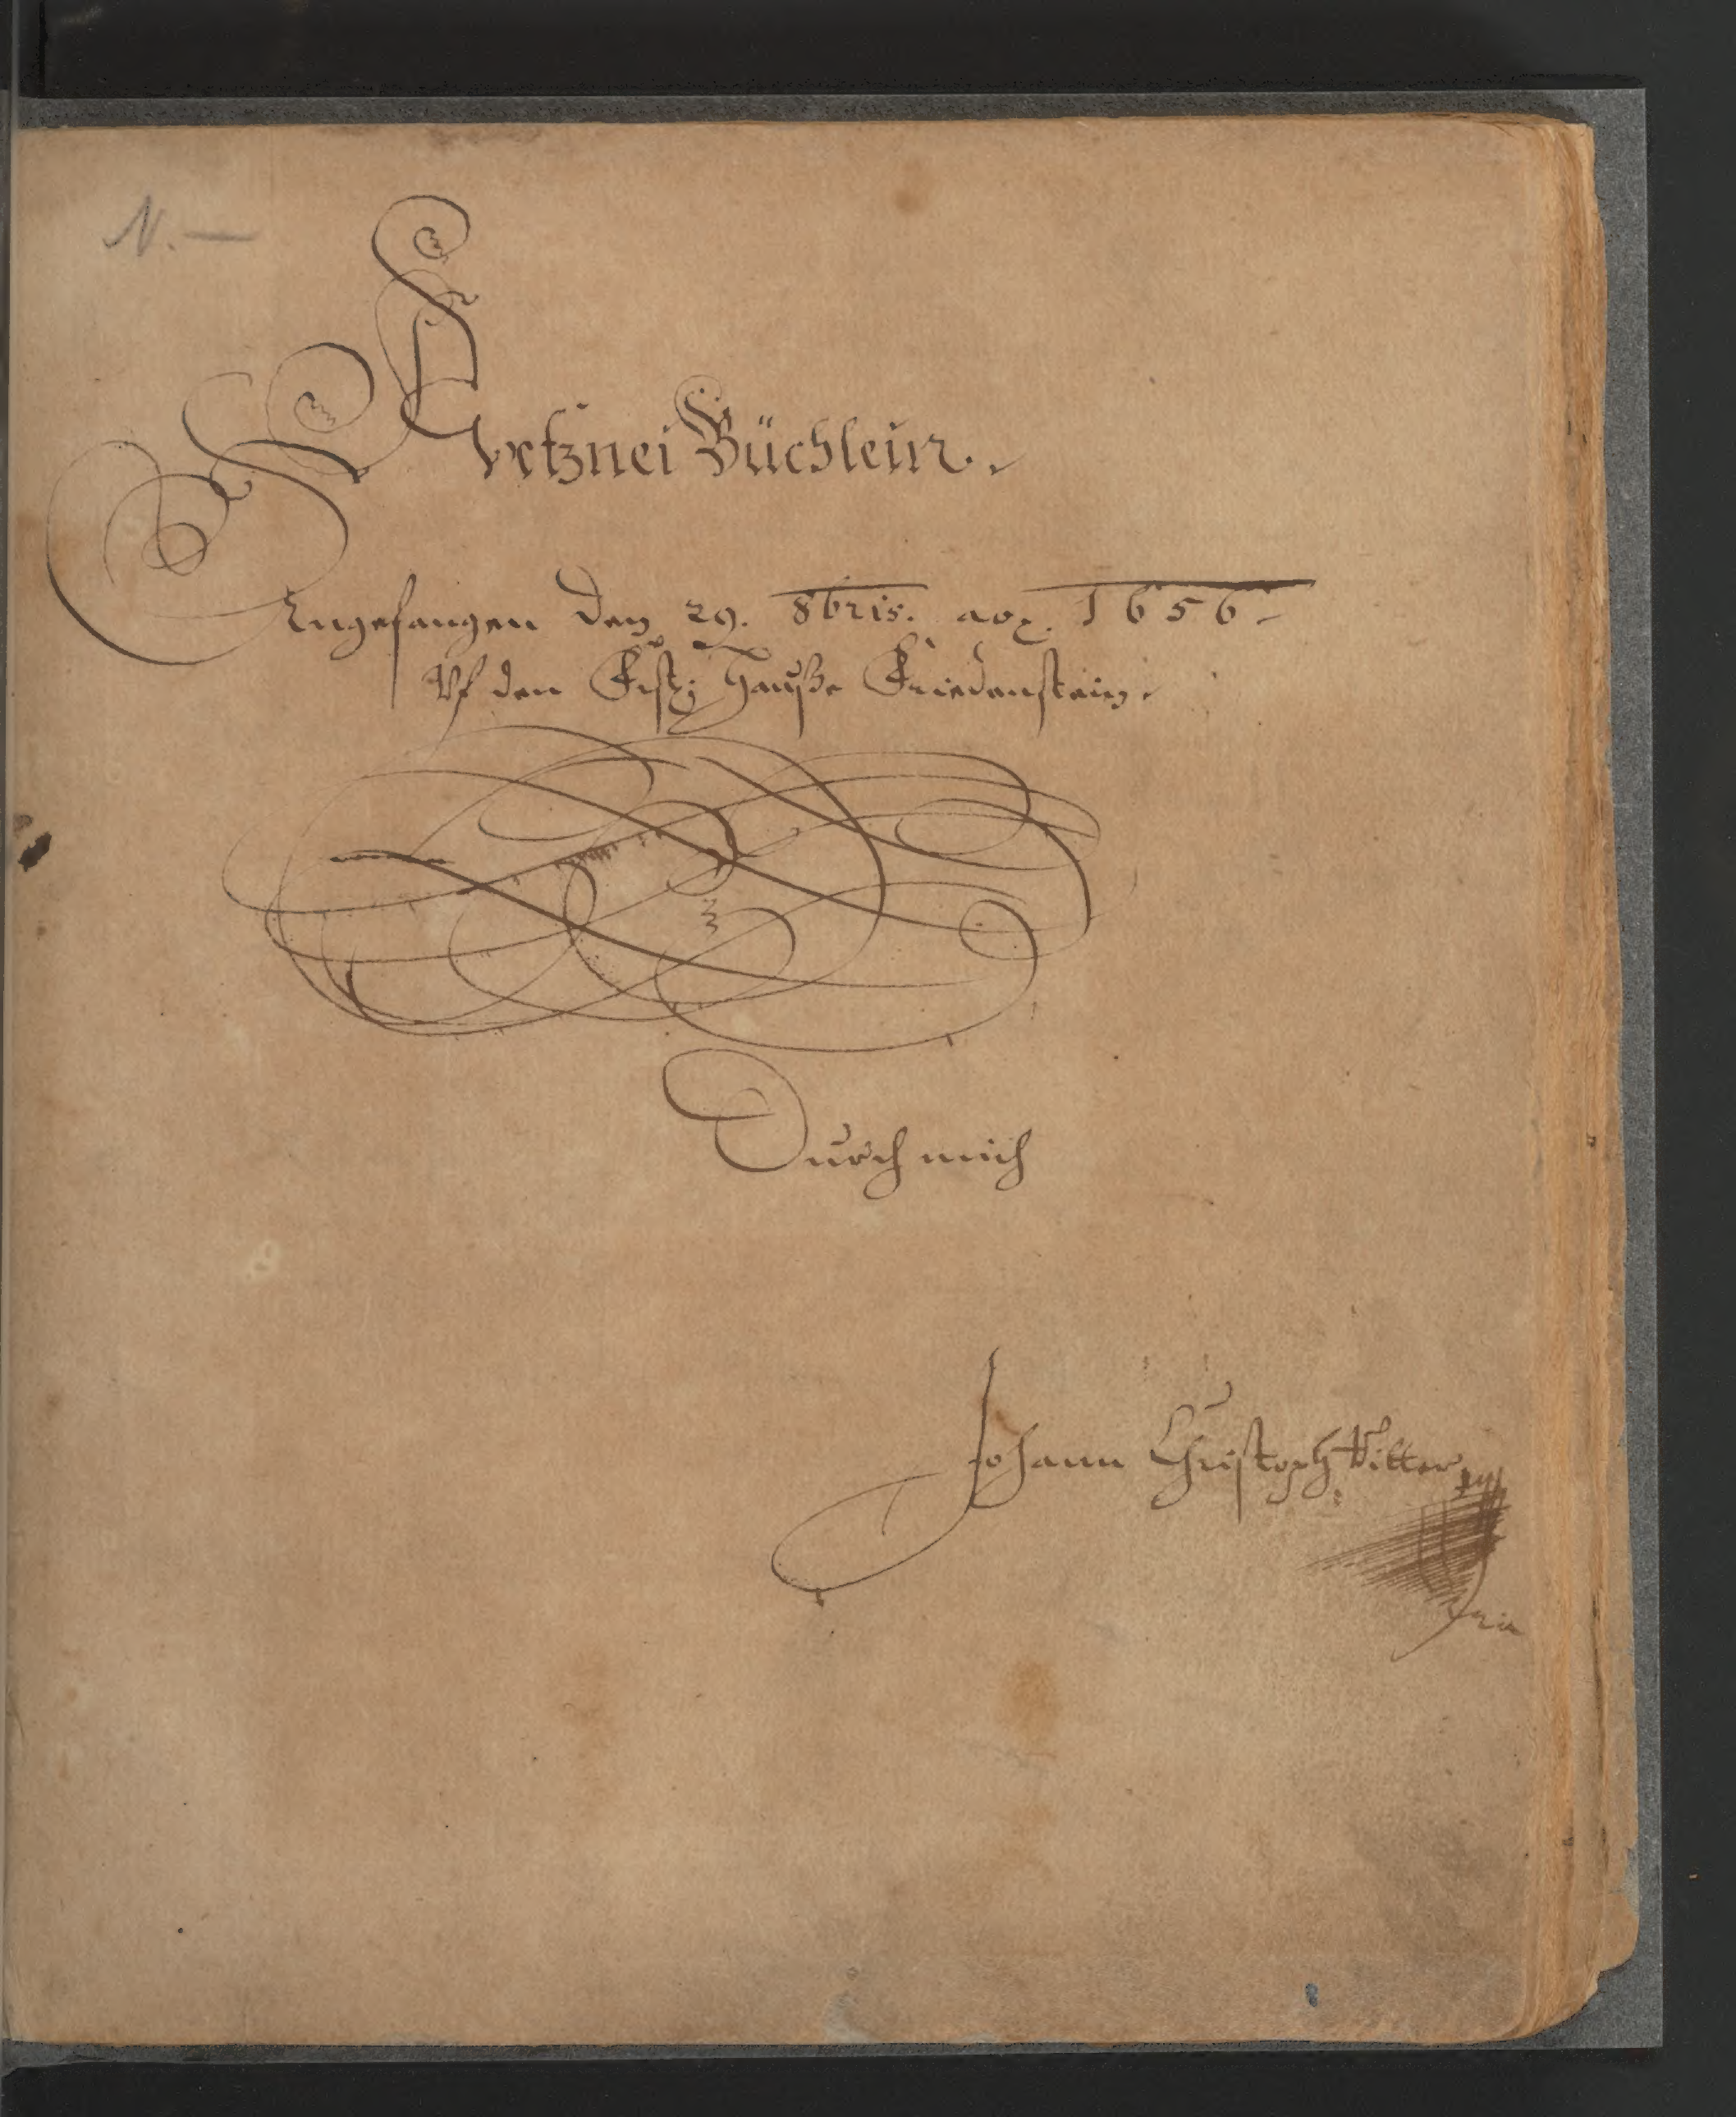 N. —
Artznei Büchlein.
Angefangen den 29. 8bris. ao. 1656.
Vf den Frstl: Hauße Friedenstein.
Durch mich
Johann Christoph Vitter